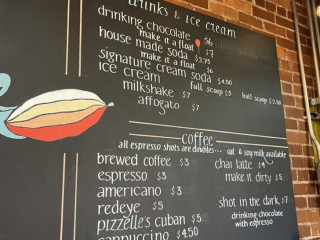 drinks & ice cream
drinking chocolate $6
make it a float $7
house made soda $3.75
make it a float $6
signature cream soda $4.50
ice cream full scoop $5 half scoop $2.50
milkshake $7
affogato $7
coffee
all espresso shots are doubles... oat & soy milk available
brewed coffee $3
espresso $3
americano $3
redeye $5
pizzelle's cuban $5
cappuccino $4.50
chai latte $4
make it dirty $5
shot in the dark $7
drinking chocolate
with espresso